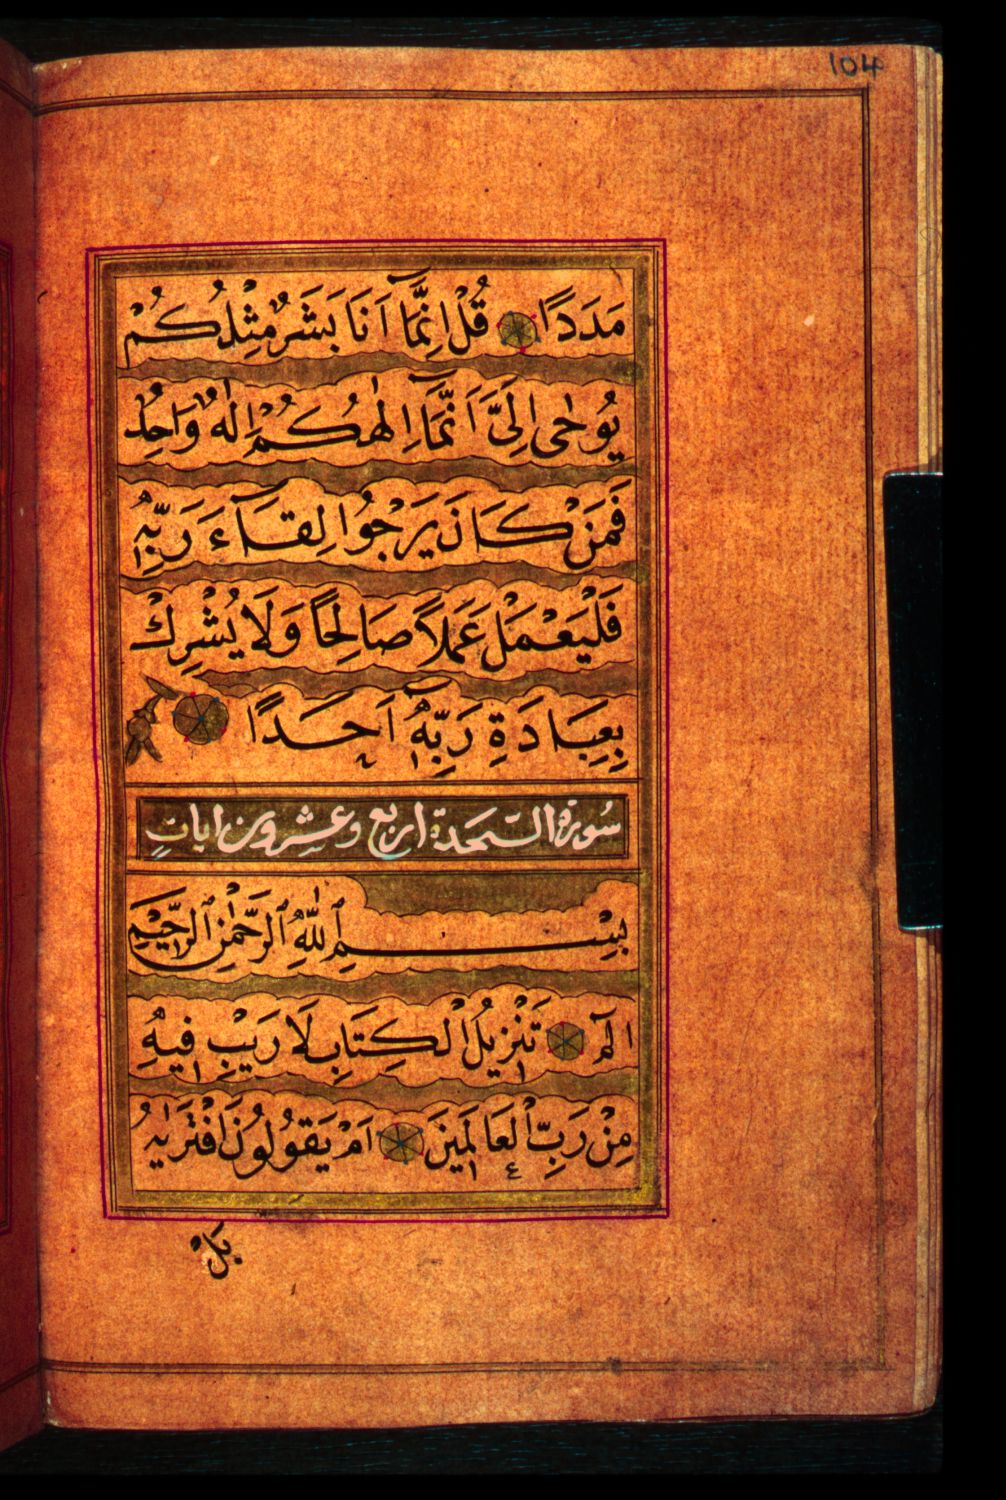 104
مَدَدًا قُلْ اِنَّمَآ اَنَا بَشَرٌ مِثْلُكُمْ
يُوحٰى اِلَىَّ اَنَّمَآ اِلٰهُكُمْ اِلٰهٌ وَاحِدٌ
فَمَنْ كَانَ يَرْجُوا لِقَآءَ رَبِّهٖ
فَلْيَعْمَلْ عَمَلًا صَالِحًا وَلَا يُشْرِكْ
بِعِبَادَةِ رَبِّهٖٓ اَحَدًا
سُورَةُ السَّجدة اربع وعشرون ايات
بِسْمِ ٱللّٰهِ ٱلرَّحْمٰنِ ٱلرَّحِيْمِ
الٓمٓ تَنْزِيلُ الْكِتَابِ لَا رَيْبَ فِيهِ
مِنْ رَبِّ الْعَالَمِينَ اَمْ يَقُولُونَ افْتَرٰيهُ
بَلْ